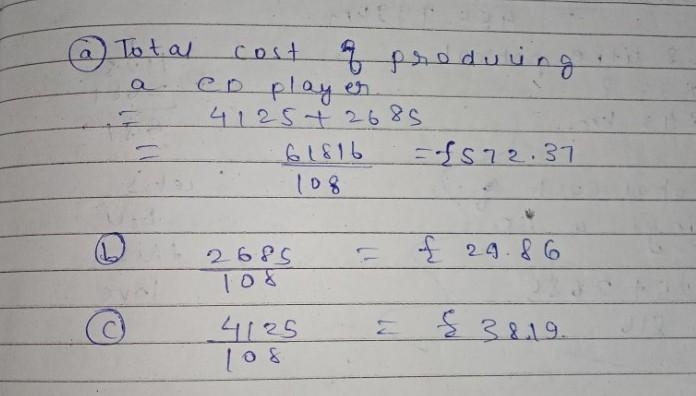 (a) Total cost of produuing
a CD player
= 4125 + 2685
= 61816/108 = £572.37
(b) 2685/108 = £ 29.86
(c) 4125/108 = £ 38.19.